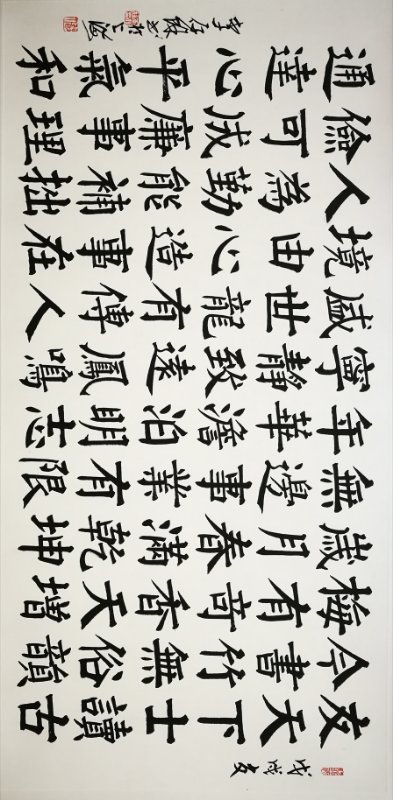 戊戌夏
友天下士讀古
今書竹無俗韻
梅有奇香天增
歲月春滿乾坤
無邊事業有限
年華澹泊明志
寧靜致遠鳳鳴
盛世龍有傳人
境由心造事在
人為勤能補拙
儉可成廉事理
通達心平氣和
李